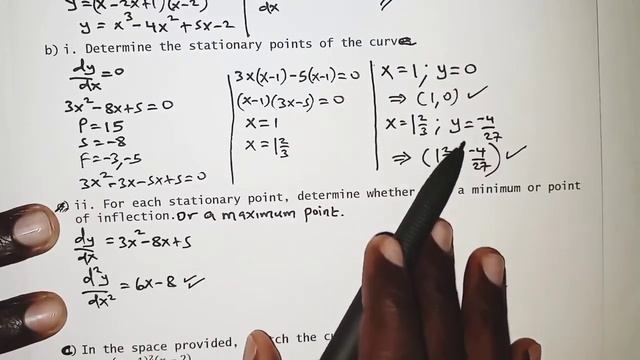 y=(x²-2x+1)(x-2)
y = x³-4x²+5x-2
dx
b) i. Determine the stationary points of the curve
dy/dx = 0
3x²-8x+5=0
P=15
S=-8
F=-3,-5
3x²-3x-5x+5=0
3x(x-1)-5(x-1)=0
(x-1)(3x-5)=0
x=1
x=1 2/3
x=1; y=0
⇒ (1,0) ✓
x=1 2/3; y=-4/27
⇒ (1 2 -4/27) ✓
ii. For each stationary point, determine whether a minimum or point
of inflection. Or a maximum point.
dy/dx = 3x²-8x+5
d²y/dx² = 6x-8 ✓
c) In the space provided, the cu